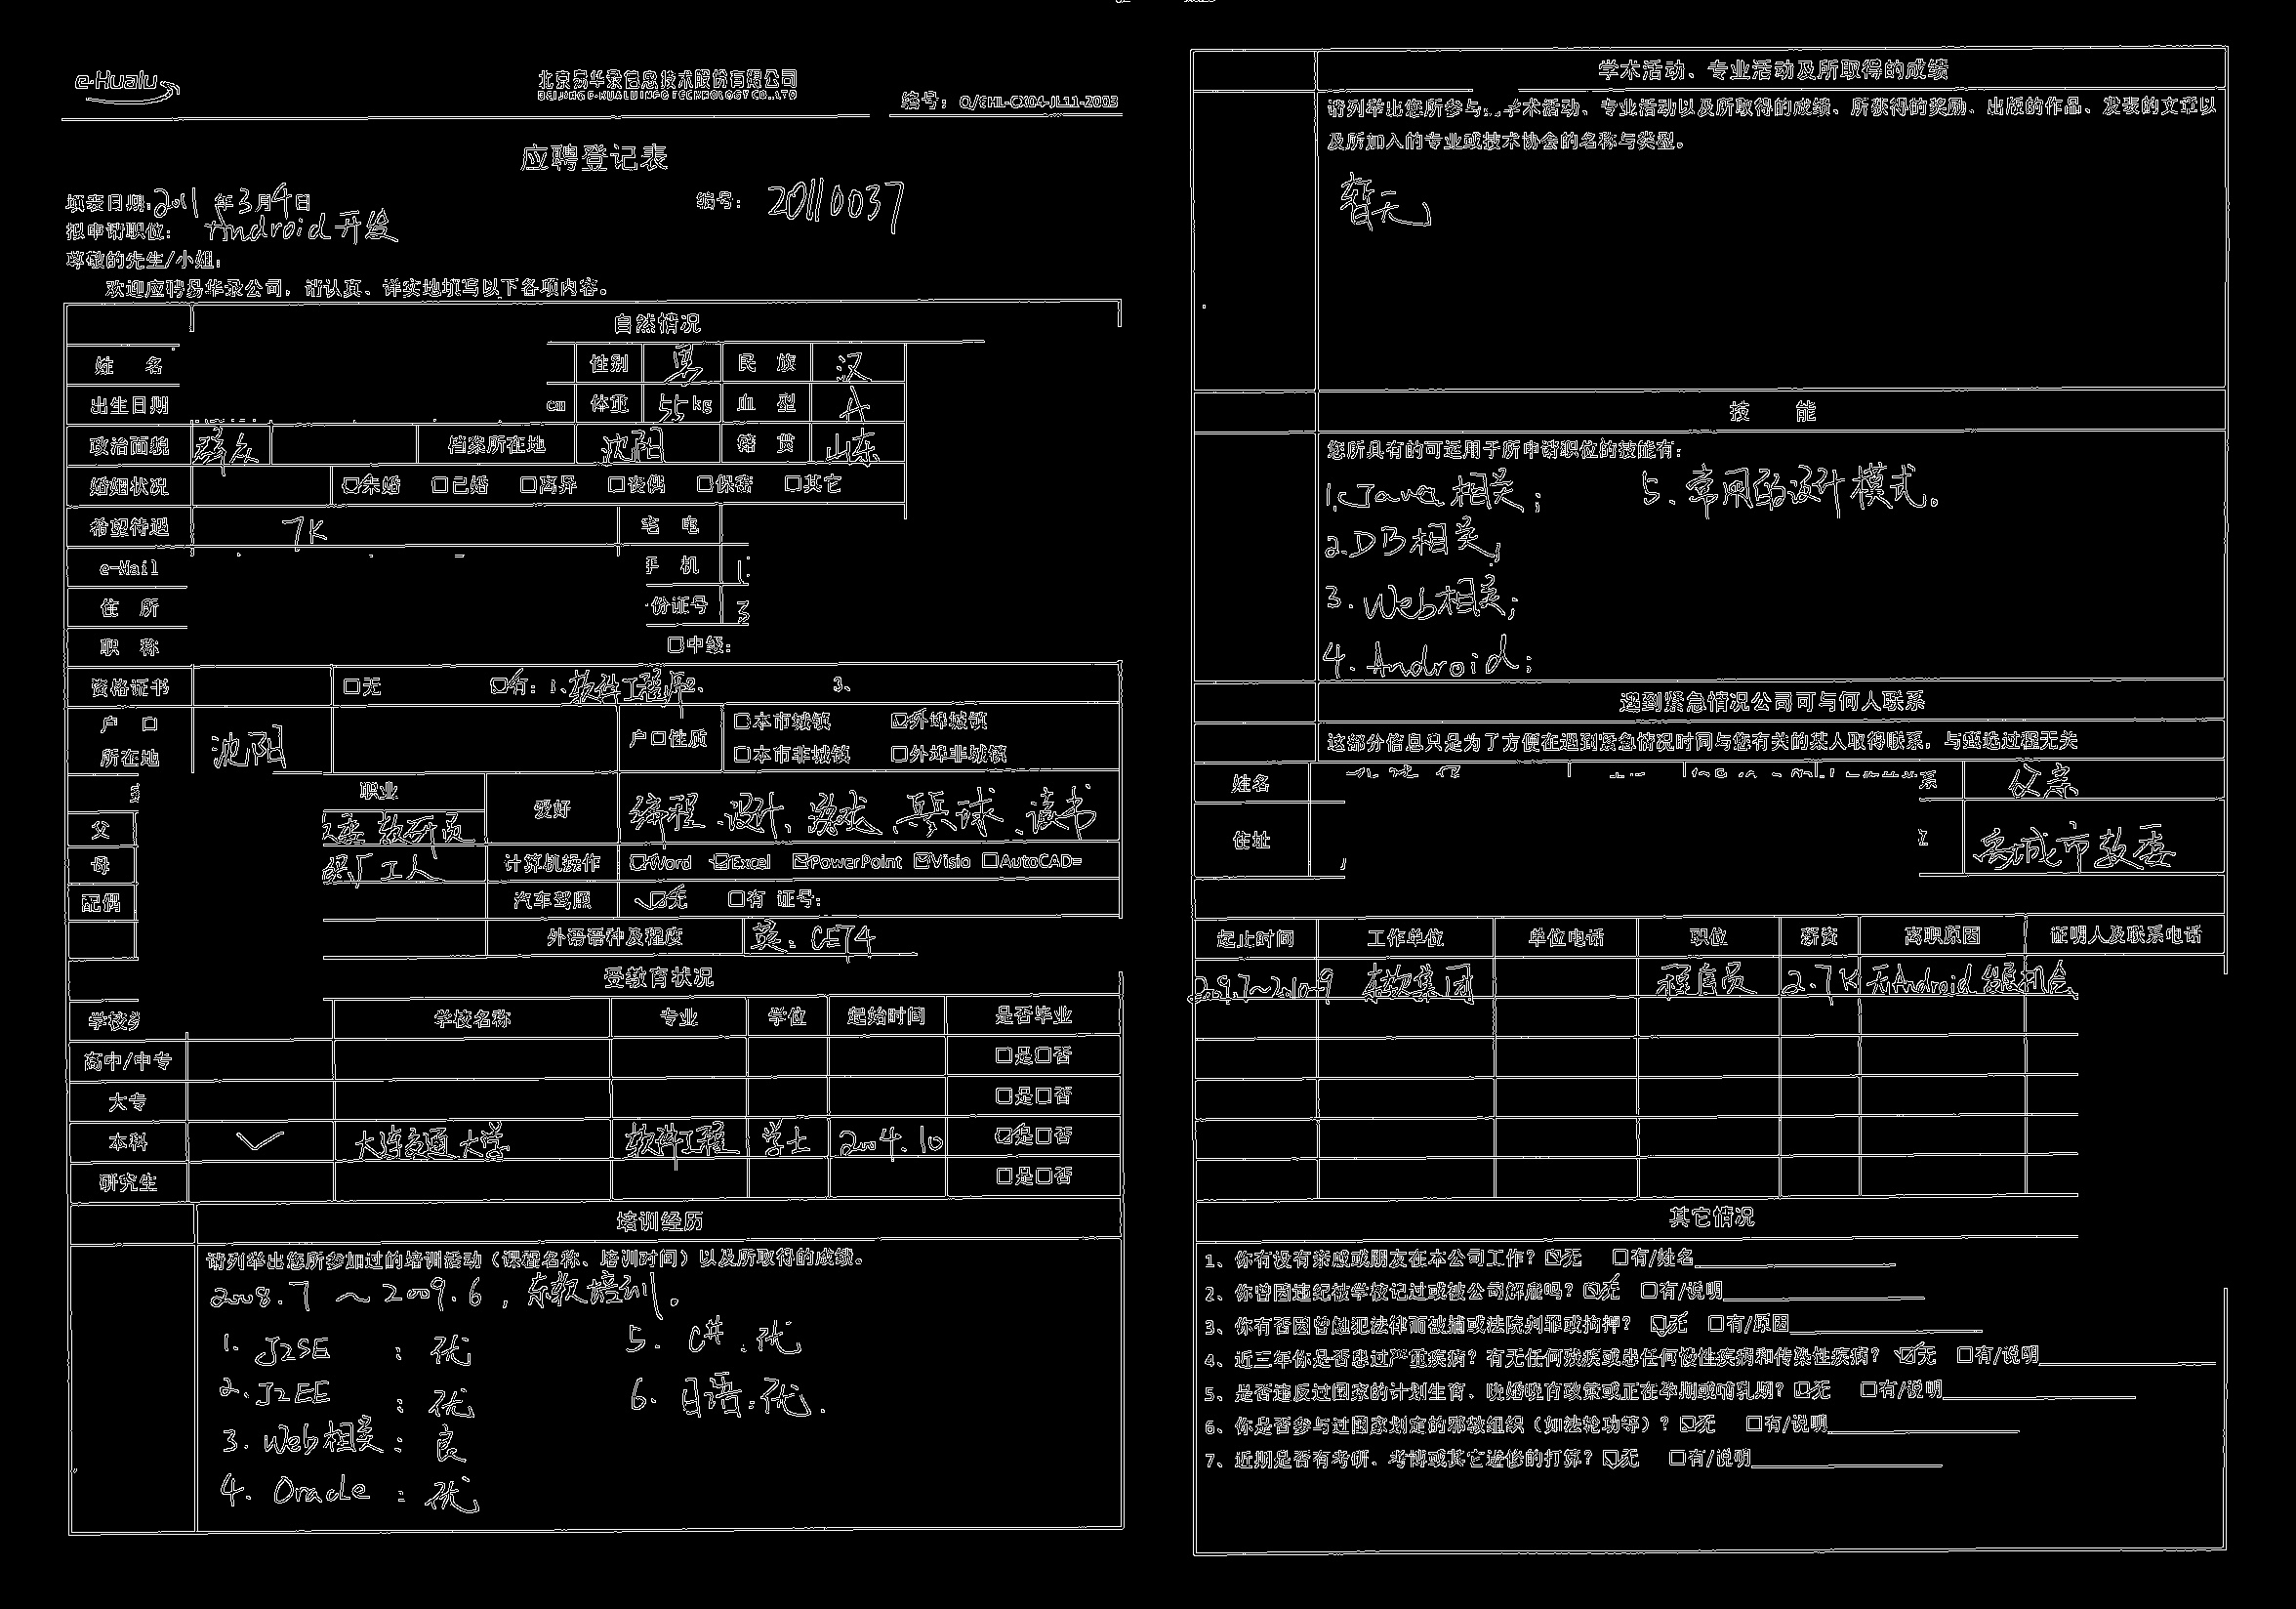 e-Hualu
北京易华录信息技术股份有限公司
BEIJING E-HUALU INFO TECHNOLOGY CO.,LTD
编号：Q/EHL-CX04-JL11-2003
应聘登记表
填表日期：2011年3月4日 编号：20110037
拟申请职位：Android开发
尊敬的先生/小姐：
欢迎应聘易华录公司，请认真、详实地填写以下各项内容。
自然情况
姓 名 性别 男 民 族 汉
出生日期 cm 体重 55kg 血 型 A
政治面貌 群众 档案所在地 沈阳 籍 贯 山东
婚姻状况 ☑未婚 □已婚 □离异 □丧偶 □保密 □其它
希望待遇 7K 宅 电
e-Mail 手 机
住 所 份证号
职 称 □中级：
资格证书 □无 ☑有：1、软件工程师2、 3、
户 口 所在地 沈阳 户口性质 □本市城镇 ☑外埠城镇
□本市非城镇 □外埠非城镇
职业 爱好 编程、设计、游戏、乒乓球、读书
父 教研员
母 工人 计算机操作 ☑Word ☑Excel ☑PowerPoint ☑Visio □AutoCAD
配偶 汽车驾照 ☑无 □有 证号：
外语语种及程度 英：CET4
受教育状况
学校 学校名称 专业 学位 起始时间 是否毕业
高中/中专 □是□否
大专 □是□否
本科 ✓ 大连交通大学 软件工程 学士 2004.10 ☑是□否
研究生 □是□否
培训经历
请列举出您所参加过的培训活动（课程名称、培训时间）以及所取得的成绩。
2008.7 ～ 2009.6，东软培训。
1. J2SE ：优 5. C#：优
2. J2EE ：优 6. 日语：优.
3. Web相关：良
4. Oracle ：优
学术活动、专业活动及所取得的成绩
请列举出您所参与学术活动、专业活动以及所取得的成绩、所获得的奖励、出版的作品、发表的文章以
及所加入的专业或技术协会的名称与类型。
暂无
技 能
您所具有的可运用于所申请职位的技能有：
1.Java相关； 5、常用的设计模式。
2.DB相关；
3.Web相关；
4.Android；
遇到紧急情况公司可与何人联系
这部分信息只是为了方便在遇到紧急情况时同与您有关的某人取得联系，与甄选过程无关
姓名 系 父亲
住址 禹城市教委
起止时间 工作单位 单位电话 职位 薪资 离职原因 证明人及联系电话
2009.7～2010.9 东软集团 程序员 2.7K 无Android发展机会
其它情况
1、你有没有亲戚或朋友在本公司工作？☑无 □有/姓名
2、你曾因违纪被学校记过或被公司解雇吗？☑无 □有/说明
3、你有否因曾触犯法律而被捕或法院判罪或拘押？ ☑无 □有/原因
4、近三年你是否患过严重疾病？有无任何残疾或患任何慢性疾病和传染性疾病？ ☑无 □有/说明
5、是否违反过国家的计划生育、晚婚晚育政策或正在孕期或哺乳期？☑无 □有/说明
6、你是否参与过国家划定的邪教组织（如法轮功等）？☑无 □有/说明
7、近期是否有考研、考博或其它进修的打算？☑无 □有/说明